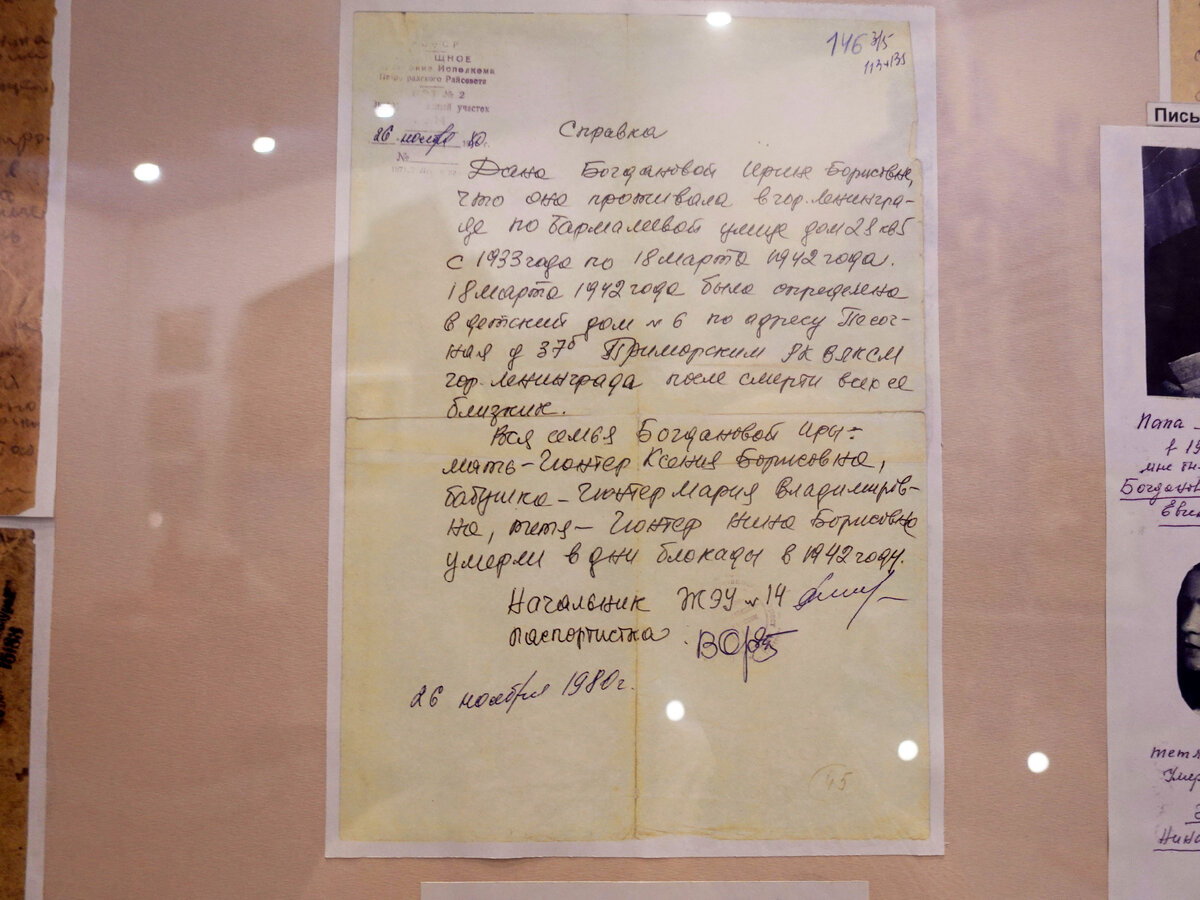 146 3/5
ЩНОЕ
Исполкома
Райсовета
№ 2
участок
26 ноября 80г.
№
Справка
Дана Богдановой Ирине Борисовне,
что она проживала в гор. Ленингра-
де по Бармалеевой улице дом 28 кв 5
с 1933 года по 18 марта 1942 года.
18 марта 1942 года была определена
в детский дом № 6 по адресу Песоч-
ная д 37б Приморским РК ВЛКСМ
гор. Ленинграда после смерти всех ее
близких.
Вся семья Богдановой Иры:
мать – Гюнтер Ксения Борисовна,
бабушка – Гюнтер Мария Владимиров-
на, тетя – Гюнтер Нина Борисовна
умерли в дни блокады в 1942 году.
Начальник ЖЭУ № 14
паспортистка
26 ноября 1980 г.
45
Пись
Папа –
мне
Богданов
Евге
тетя
Умер
Нина